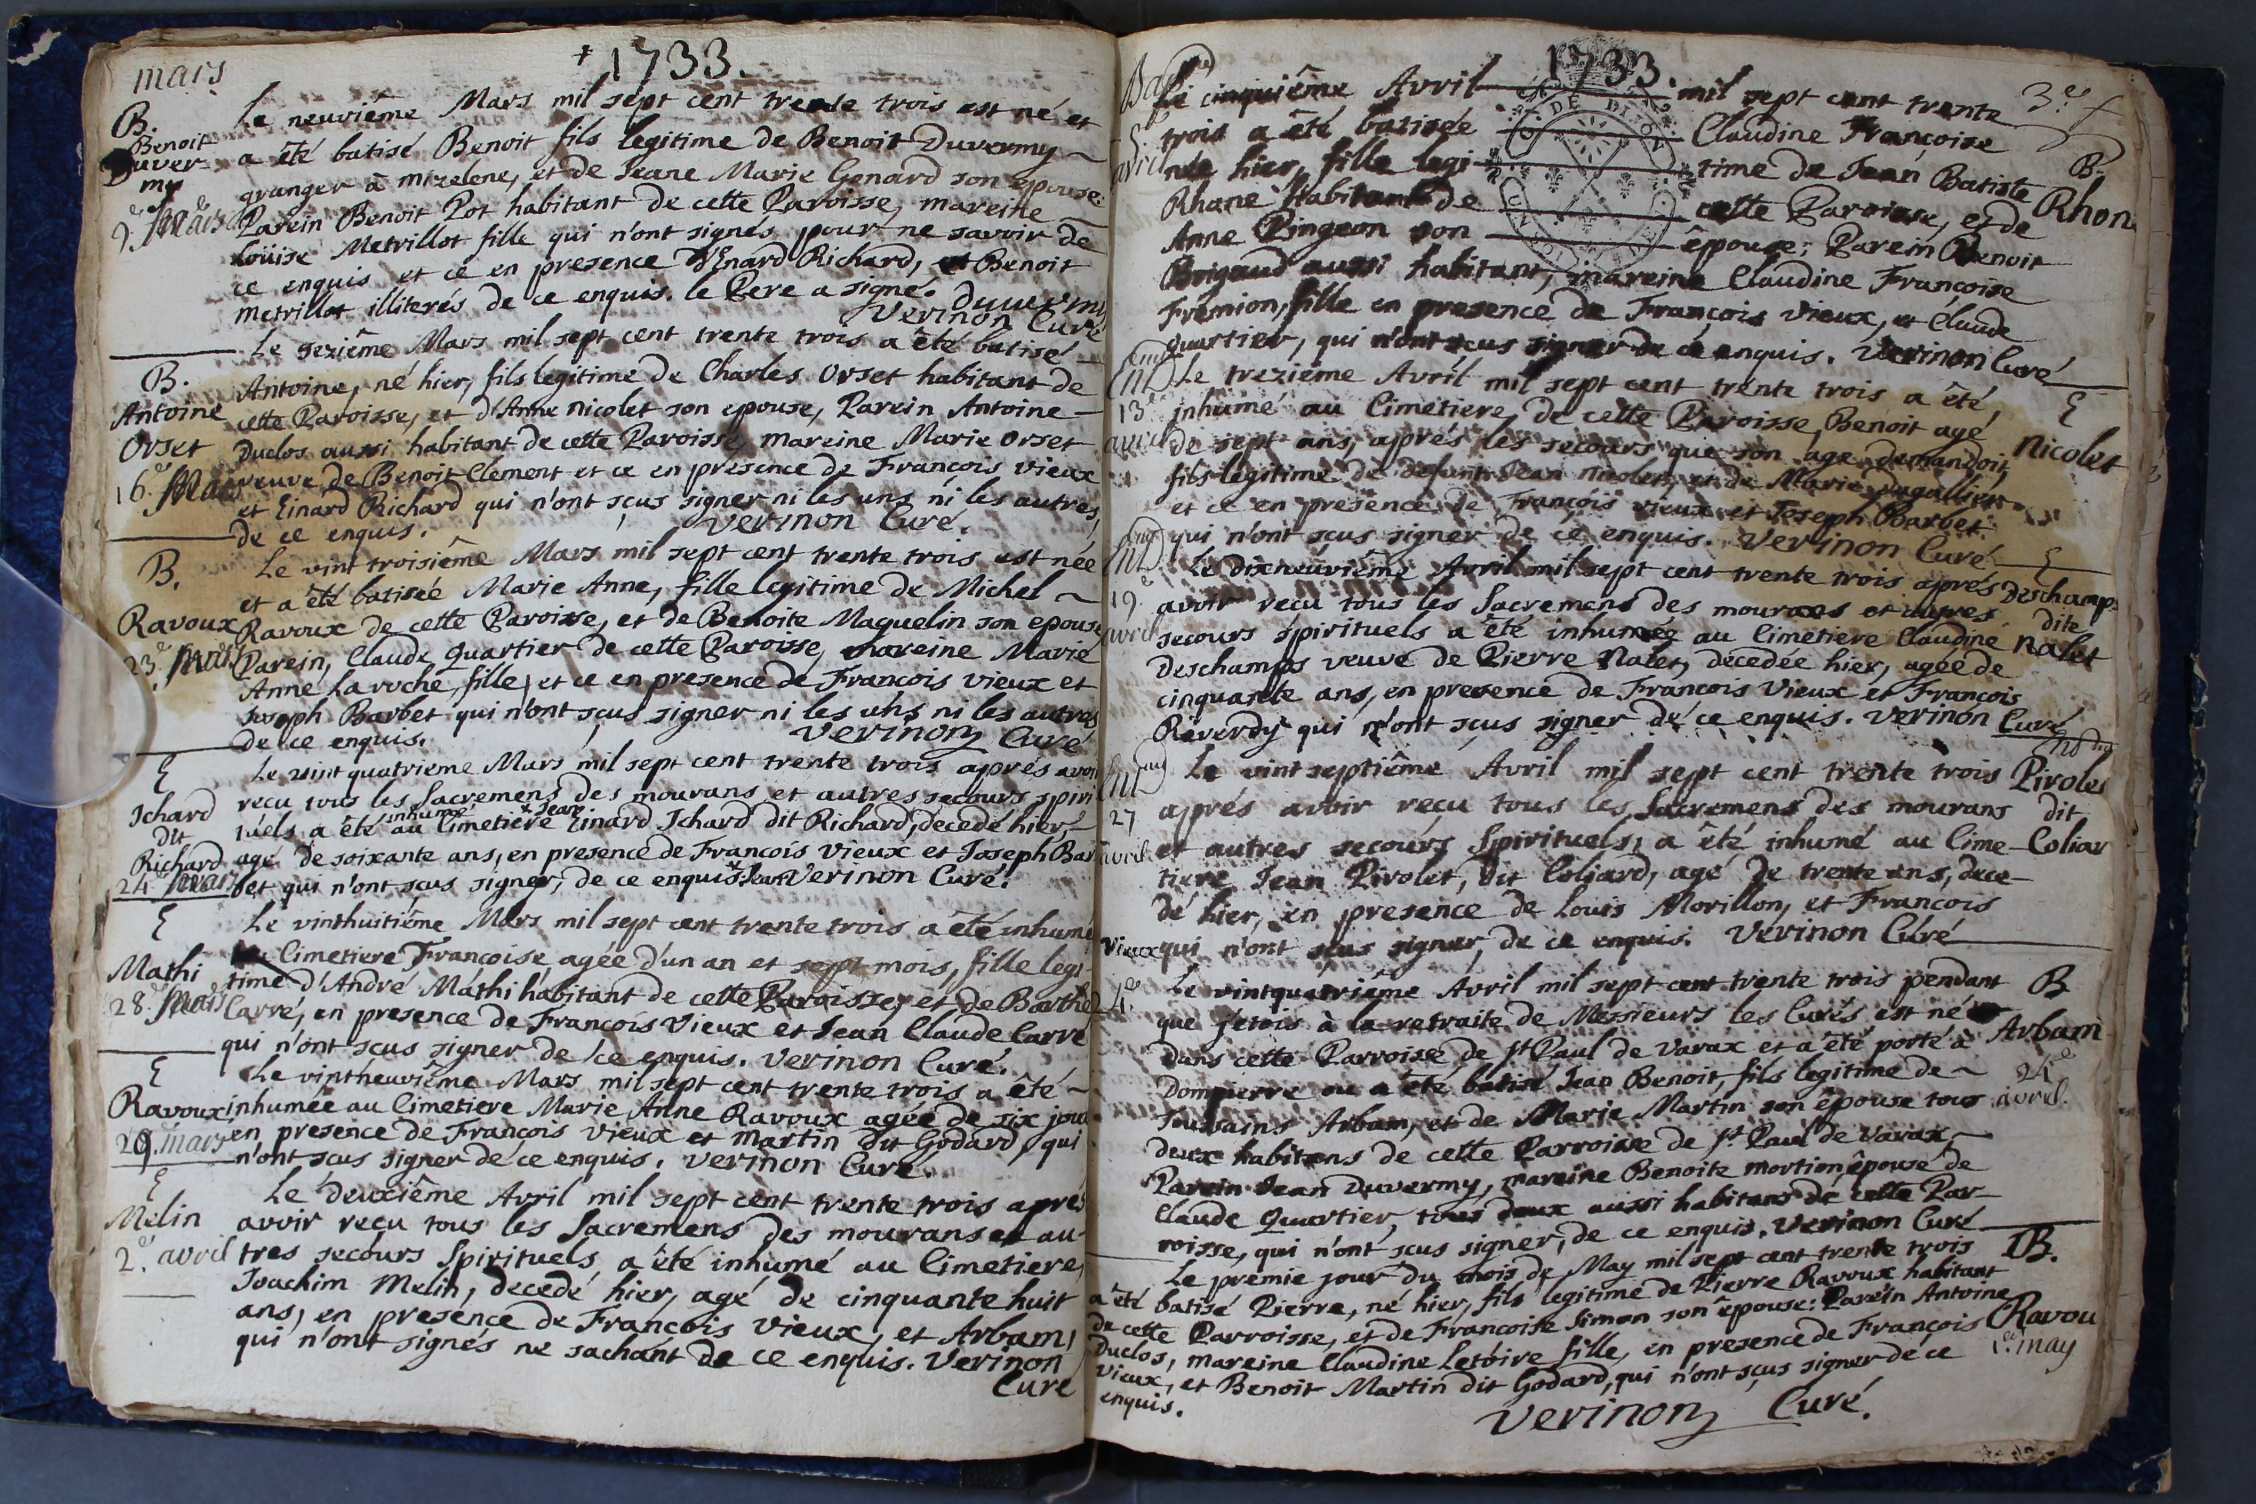 mars
+ 1733.
B. Le neuviême Mars mil sept cent trente trois est né et
Benoit Duver- a êté batisé Benoit fils legitime de Benoit Duvermy
my granger à mizelene, et de Jeane Marie Genard son epouse:
9.e Mars Parein Benoit Pot habitant de cette Paroisse, mareine
Loüise Metrillot fille qui n'ont signés pour ne savoir de
ce enquis et ce en presence d'Enard Richard, et Benoit
metrillot illiterés de ce enquis. le Pere a signé. Duvermy
Verinon Curé
Le sezième Mars mil sept cent trente trois a êté batisé
B. Antoine, né hier, fils legitime de Charles Orset habitant de
Antoine cette Paroisse, et d'Anne nicolet son epouse, Parein Antoine
Orset Duclos aussi habitant de cette Paroisse, mareine Marie Orset
16.e Mars veuve de Benoit Clement et ce en presence de François vieux
et Einard Richard qui n'ont sçus signer ni les uns ni les autres,
de ce enquis. Verinon Curé.
B. Le vint troisiême Mars mil sept cent trente trois est née
et a êté batisée Marie Anne, fille legitime de Michel
Ravoux Ravoux de cette Paroisse, et de Benoite Maguelin son epouse
23.e Mars Parein, Claude quartier de cette Paroisse, mareine Marie
Anne Laroche, fille, et ce en presence de François vieux et
Joseph Barbet qui n'ont sçus signer ni les uns ni les autres
de ce enquis. Verinon Curé
E Le vint quatrieme Mars mil sept cent trente trois aprés avoir
Jchard recu tous les Sacremens des mourans et autres secours spiri
dit tuels a êté inhumé au Cimetiere Jean Einard Jchard dit Richard, decedé hier,
Richard agé de soixante ans, en presence de François vieux et Joseph Bar
24.e Mars bet qui n'ont sçus signer, de ce enquis. Jean Verinon Curé.
E Le vinthuitiême Mars mil sept cent trente trois a êté inhumée
Cimetiere Françoise agée d'un an et sept mois, fille legi
Mathi time d'André Mathi habitant de cette Paroisse, et de Barthe
28.e Mars Carré, en presence de François Vieux et Jean Claude Carré
qui n'ont sçus signer de ce enquis. Verinon Curé.
E Le vintneuviême Mars mil sept cent trente trois a êté
Ravoux inhumée au Cimetiere Marie Anne Ravoux agée de six jours
29. mars en presence de François Vieux et martin dit Godard, qui
n'ont sçus signer de ce enquis. Verinon Curé.
E Le deuxiême Avril mil sept cent trente trois aprés
Melin avoir reçu tous les Sacremens des mourans et au
2.e avril tres secours Spirituels a êté inhumé au Cimetiere,
Joachim Melin, decedé hier, agé de cinquante huit
ans, en presence de François Vieux, et Arbam,
qui n'ont signés ne sachant de ce enquis. Verinon
Curé
1733.
Le cinquiême Avril mil sept cent trente 3.e f
trois a êté batisée Claudine Françoise
avril née hier, fille legi time de Jean Batiste B.
Rhone habitant de cette Paroisse, et de Rhon
Anne Pingeon son êpouse; Parein Benoit
Brigaud aussi habitant, mareine Claudine Françoise
Fremion, fille en presence de François vieux, et Claude
quartier, qui n'ont sçus signer de ce enquis. Verinon Curé
Le treziéme Avril mil sept cent trente trois a êté,
13.e inhumé au Cimetiere, de cette Paroisse, Benoit agé E
avril de sept ans, aprés les secours que son age demandoit, Nicolet
fils legitime de defunt Jean nicolet, et de Marie
et ce en presence de François vieux et Joseph Barbet
qui n'ont sçus signer de ce enquis. Verinon Curé
Le dixneuviême Avril mil sept cent trente trois aprés E
19.e avoir recu tous les Sacremens des mourans et autres Deschamps
avril secours spirituels a êté inhumée au Cimetiere Claudine dite
Deschamps veuve de Pierre Nalet, decedée hier, agée de nalet
cinquante ans, en presence de François Vieux et François
Reverdy qui n'ont sçus signer de ce enquis. Verinon Curé
Le vint septiême Avril mil sept cent trente trois Pirolet
27 aprés avoir reçu tous les Sacremens des mourans dit
avril et autres secours Spirituels, a êté inhumé au Cime- Coliar
tiere Jean Pirolet, dit Coliard, agé de trente ans, dece-
dé hier, en presence de Louis Morillon, et Francois
Vieux qui n'ont sçus signer, de ce enquis. Verinon Curé
24.e Le vintquatriême Avril mil sept cent trente trois pendant B
que j'etois à la retraite de Messieurs les Curés est né
dans cette Parroisse de St Paul de Varax et a êté porté à Arbam
Dompierre ou a êté batisé Jean Benoit, fils legitime de 24.e
Toussains Arbam, et de Marie Martin son êpouse tous avril.
deux habitans de cette Parroisse de St Paul de Varax
Parein Jean Duvermy, mareine Benoite mortion êpouse de
Claude Quartier, tous deux aussi habitans de cette Par-
roisse, qui n'ont sçus signer, de ce enquis. Verinon Curé
Le premie jour du mois de May mil sept cent trente trois B.
a êté batisé Pierre, né hier, fils legitime de Pierre Ravoux habitant
de cette Parroisse, et de Francoise Simon son êpouse: Parein Antoine Ravou
Duclos, mareine Claudine Letoire fille, en presence de François 1.er may
vieux, et Benoit Martin dit Godard, qui n'ont sçus signer de ce
enquis.
Verinon Curé.